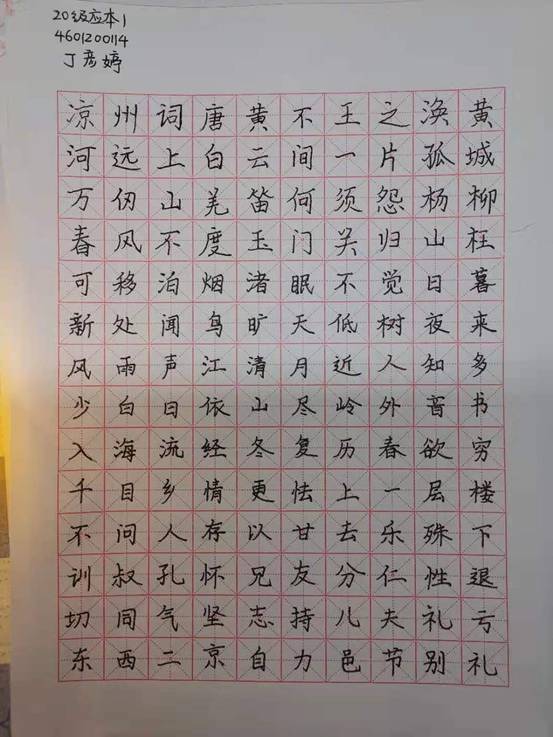 20级应本1
460120114
丁彦婷
凉州词唐黄不王之涣黄
河远上白云间一片孤城
万仞山羌笛何须怨杨柳
春风不度玉门关归山枉
可移泊烟渚眠不觉日暮
新处闻鸟旷天低树夜来
风雨声江清月近人知多
少白日依山尽岭外音书
入海流经冬复历春欲穷
千目乡情更怯上一层楼
不问人存以甘去乐殊下
训叔孔怀兄友分仁性退
切同气坚志持儿夫礼亏
东西二京自力邑节别礼